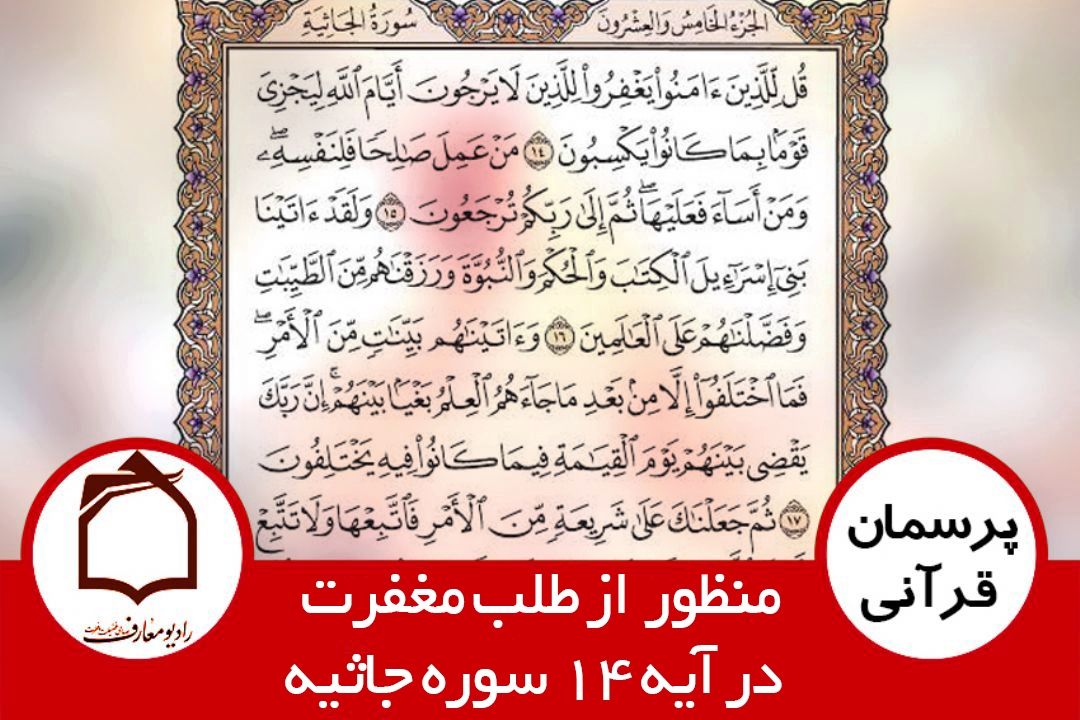 الجُزْءُ الخَامِسُ وَالعِشْرُونَ
سُورَةُ الجَاثِيَةِ
قُل لِّلَّذِينَ ءَامَنُوا۟ يَغْفِرُوا۟ لِلَّذِينَ لَا يَرْجُونَ أَيَّامَ ٱللَّهِ لِيَجْزِىَ
قَوْمًۢا بِمَا كَانُوا۟ يَكْسِبُونَ ١٤ مَنْ عَمِلَ صَٰلِحًا فَلِنَفْسِهِۦ ۖ
وَمَنْ أَسَآءَ فَعَلَيْهَا ۖ ثُمَّ إِلَىٰ رَبِّكُمْ تُرْجَعُونَ ١٥ وَلَقَدْ ءَاتَيْنَا
بَنِىٓ إِسْرَٰٓءِيلَ ٱلْكِتَٰبَ وَٱلْحُكْمَ وَٱلنُّبُوَّةَ وَرَزَقْنَٰهُم مِّنَ ٱلطَّيِّبَٰتِ
وَفَضَّلْنَٰهُمْ عَلَى ٱلْعَٰلَمِينَ ١٦ وَءَاتَيْنَٰهُم بَيِّنَٰتٍ مِّنَ ٱلْأَمْرِ ۖ
فَمَا ٱخْتَلَفُوٓا۟ إِلَّا مِنۢ بَعْدِ مَا جَآءَهُمُ ٱلْعِلْمُ بَغْيًۢا بَيْنَهُمْ ۚ إِنَّ رَبَّكَ
يَقْضِى بَيْنَهُمْ يَوْمَ ٱلْقِيَٰمَةِ فِيمَا كَانُوا۟ فِيهِ يَخْتَلِفُونَ
١٧ ثُمَّ جَعَلْنَٰكَ عَلَىٰ شَرِيعَةٍ مِّنَ ٱلْأَمْرِ فَٱتَّبِعْهَا وَلَا تَتَّبِعْ
پرسمان
قرآنی
رادیو معارف
منظور از طلب مغفرت
در آیه ۱۴ سوره جاثیه